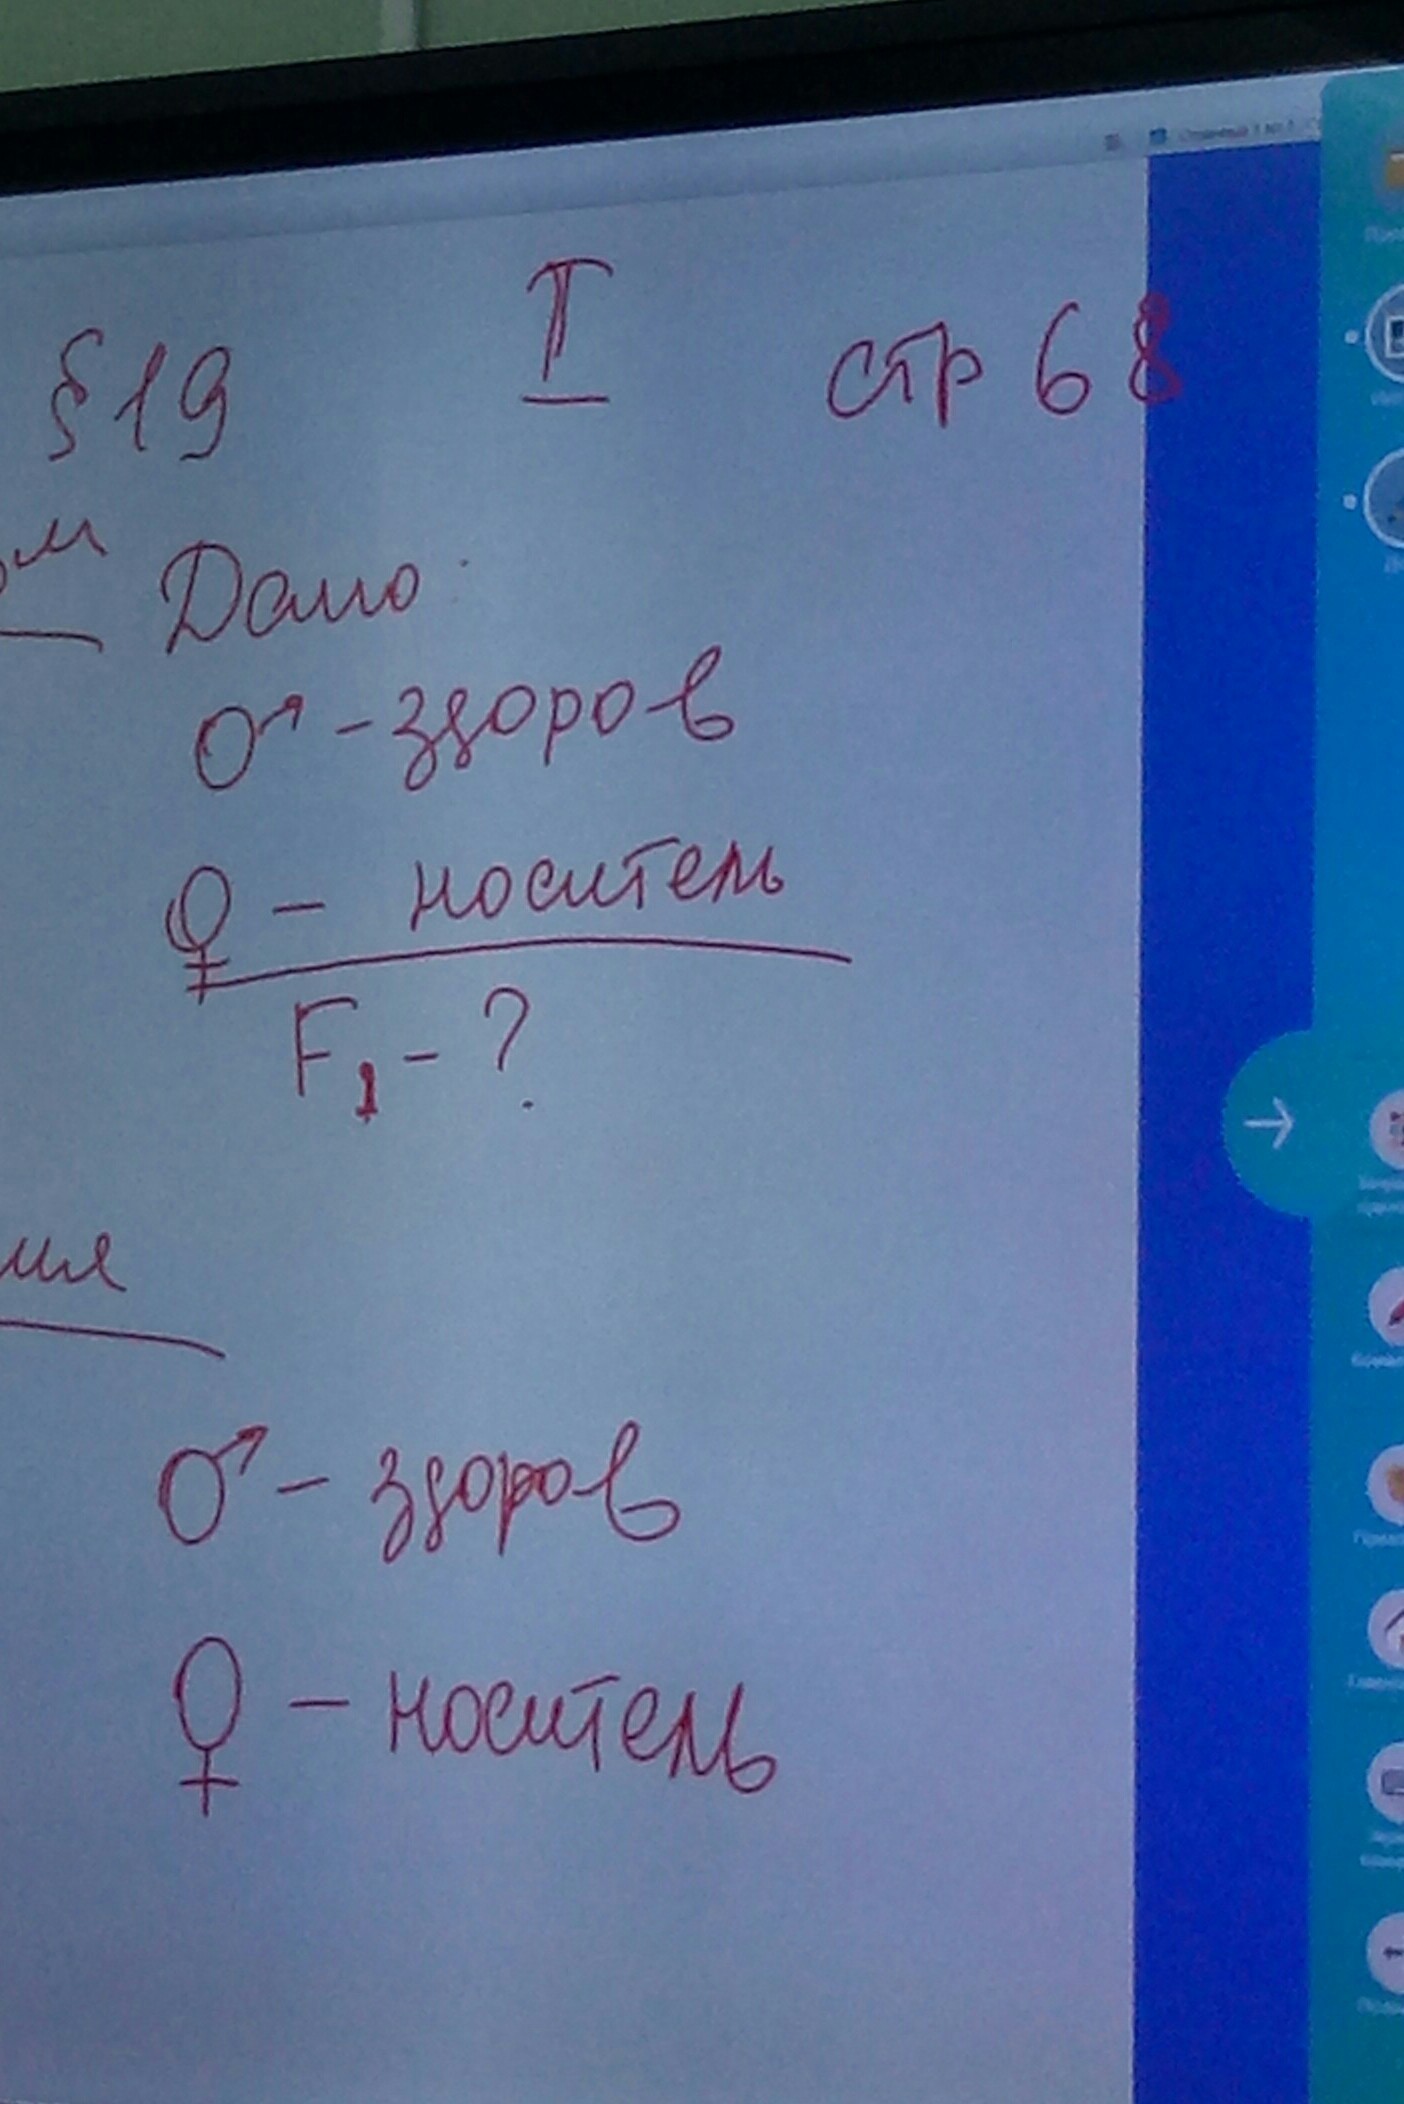 §19 I стр 68
Дано:
♂ - здоров
♀ - носитель
F1 - ?
♂ - здоров
♀ - носитель